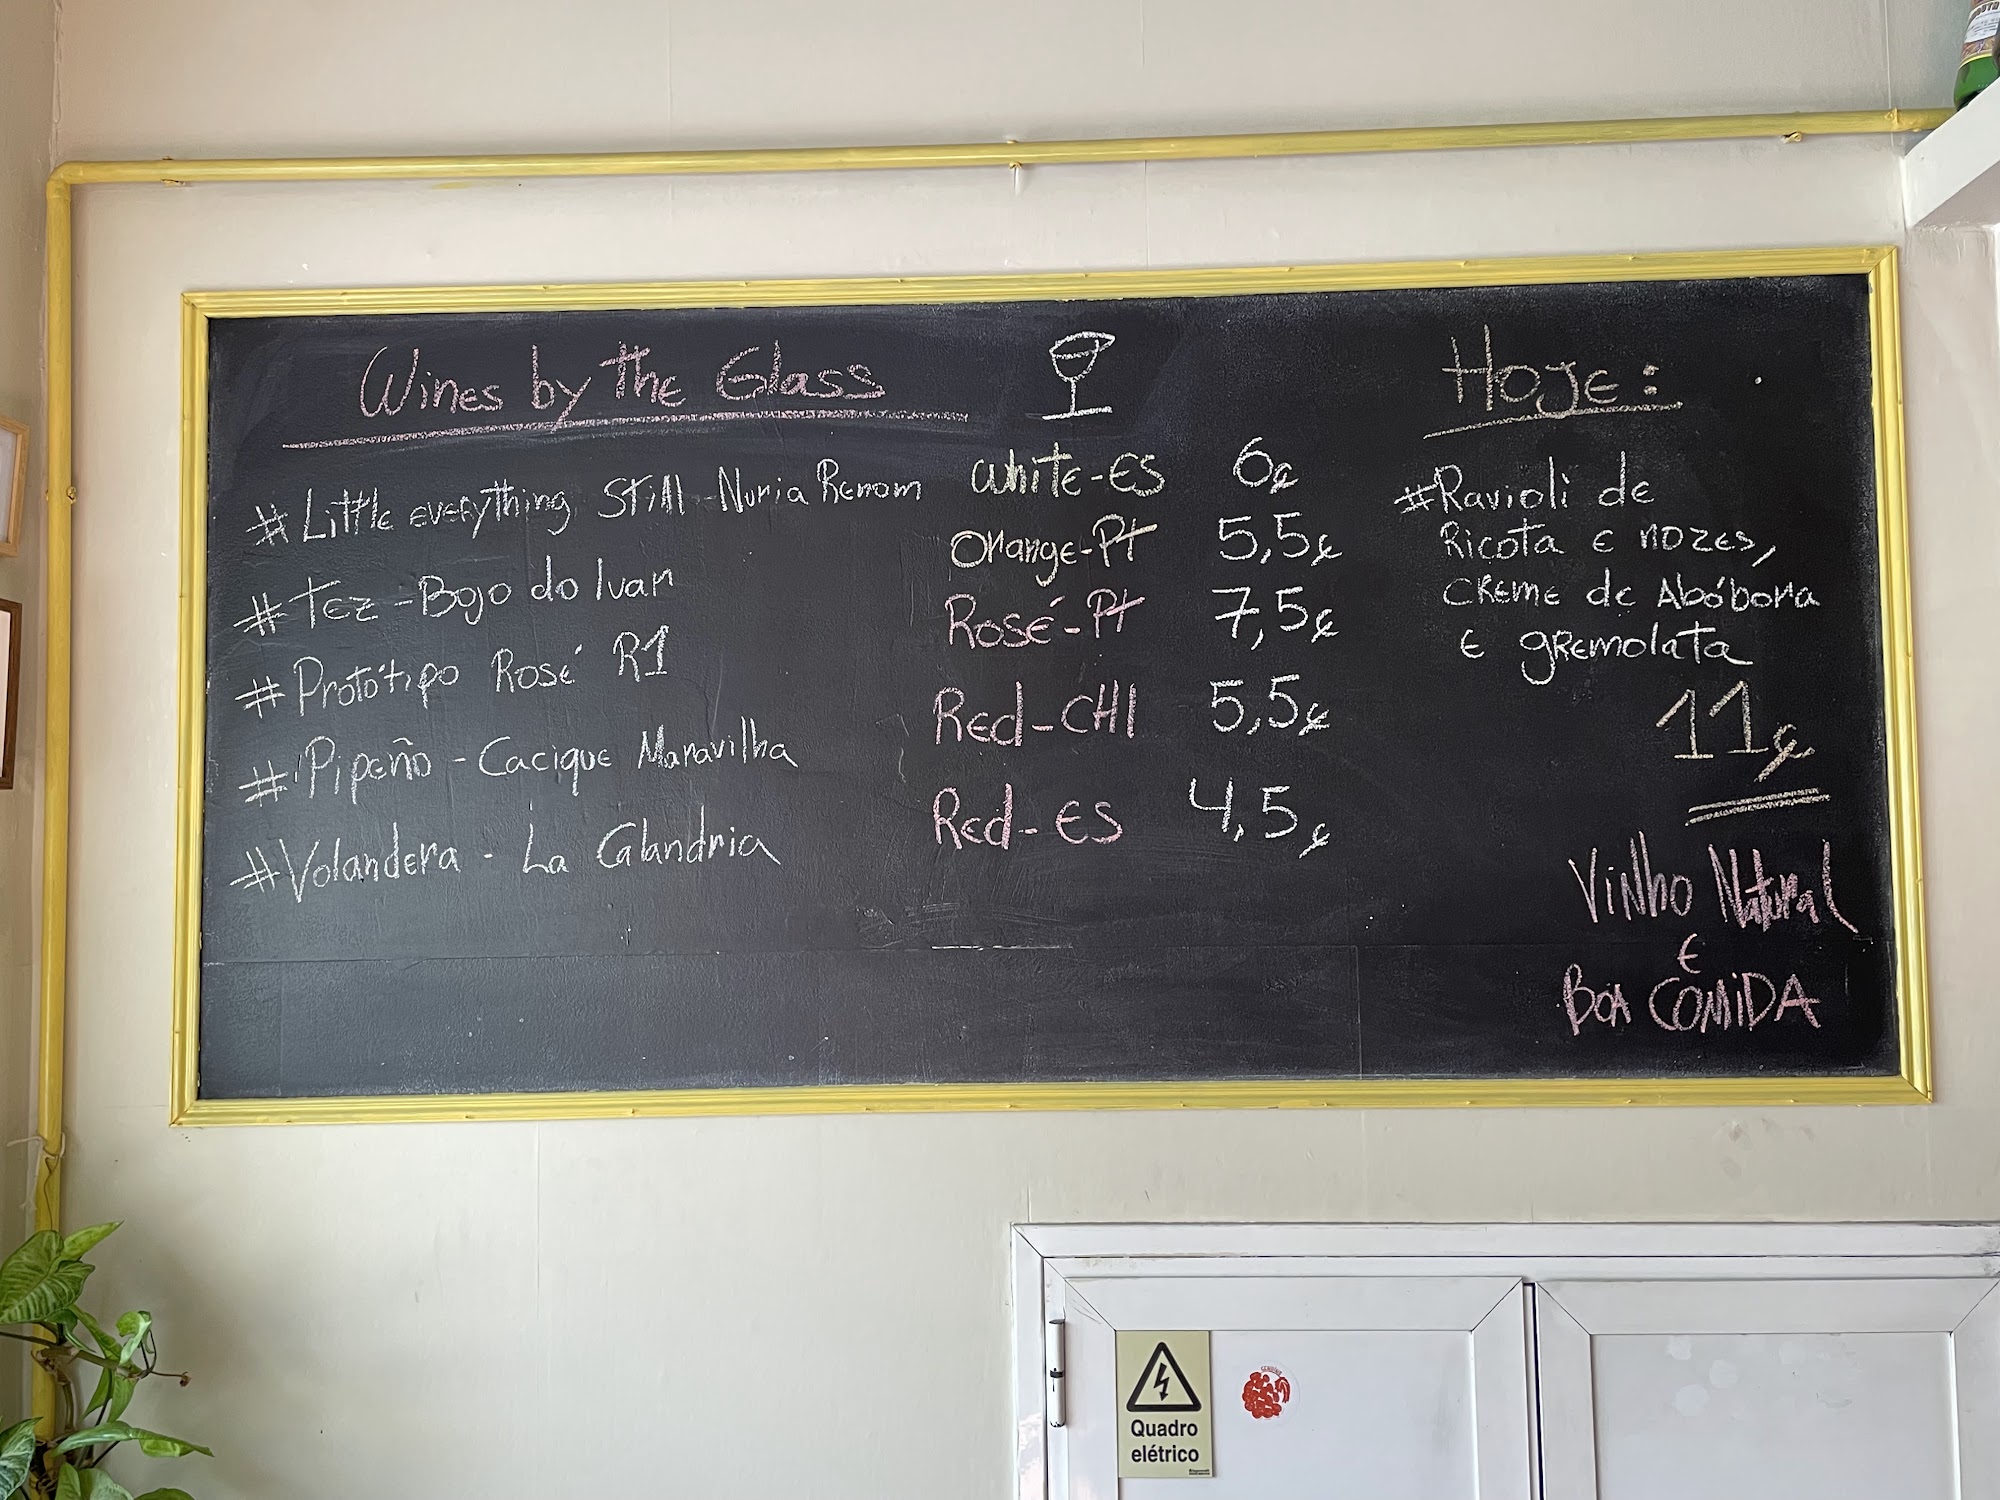 Wines by the Glass
#Little everything Still - Nuria Renom White-ES 6€
#Tez - Bojo do Ivan Orange-Pt 5,5€
#Protótipo Rosé R1 Rosé-Pt 7,5€
#Pipeño - Cacique Maravilha Red-CHI 5,5€
#Volandera - La Calandria Red-ES 4,5€
Hoje:
#Ravioli de
Ricota e nozes,
creme de Abóbora
e gremolata
11€
Vinho Natural
e
Boa Comida
Quadro
elétrico